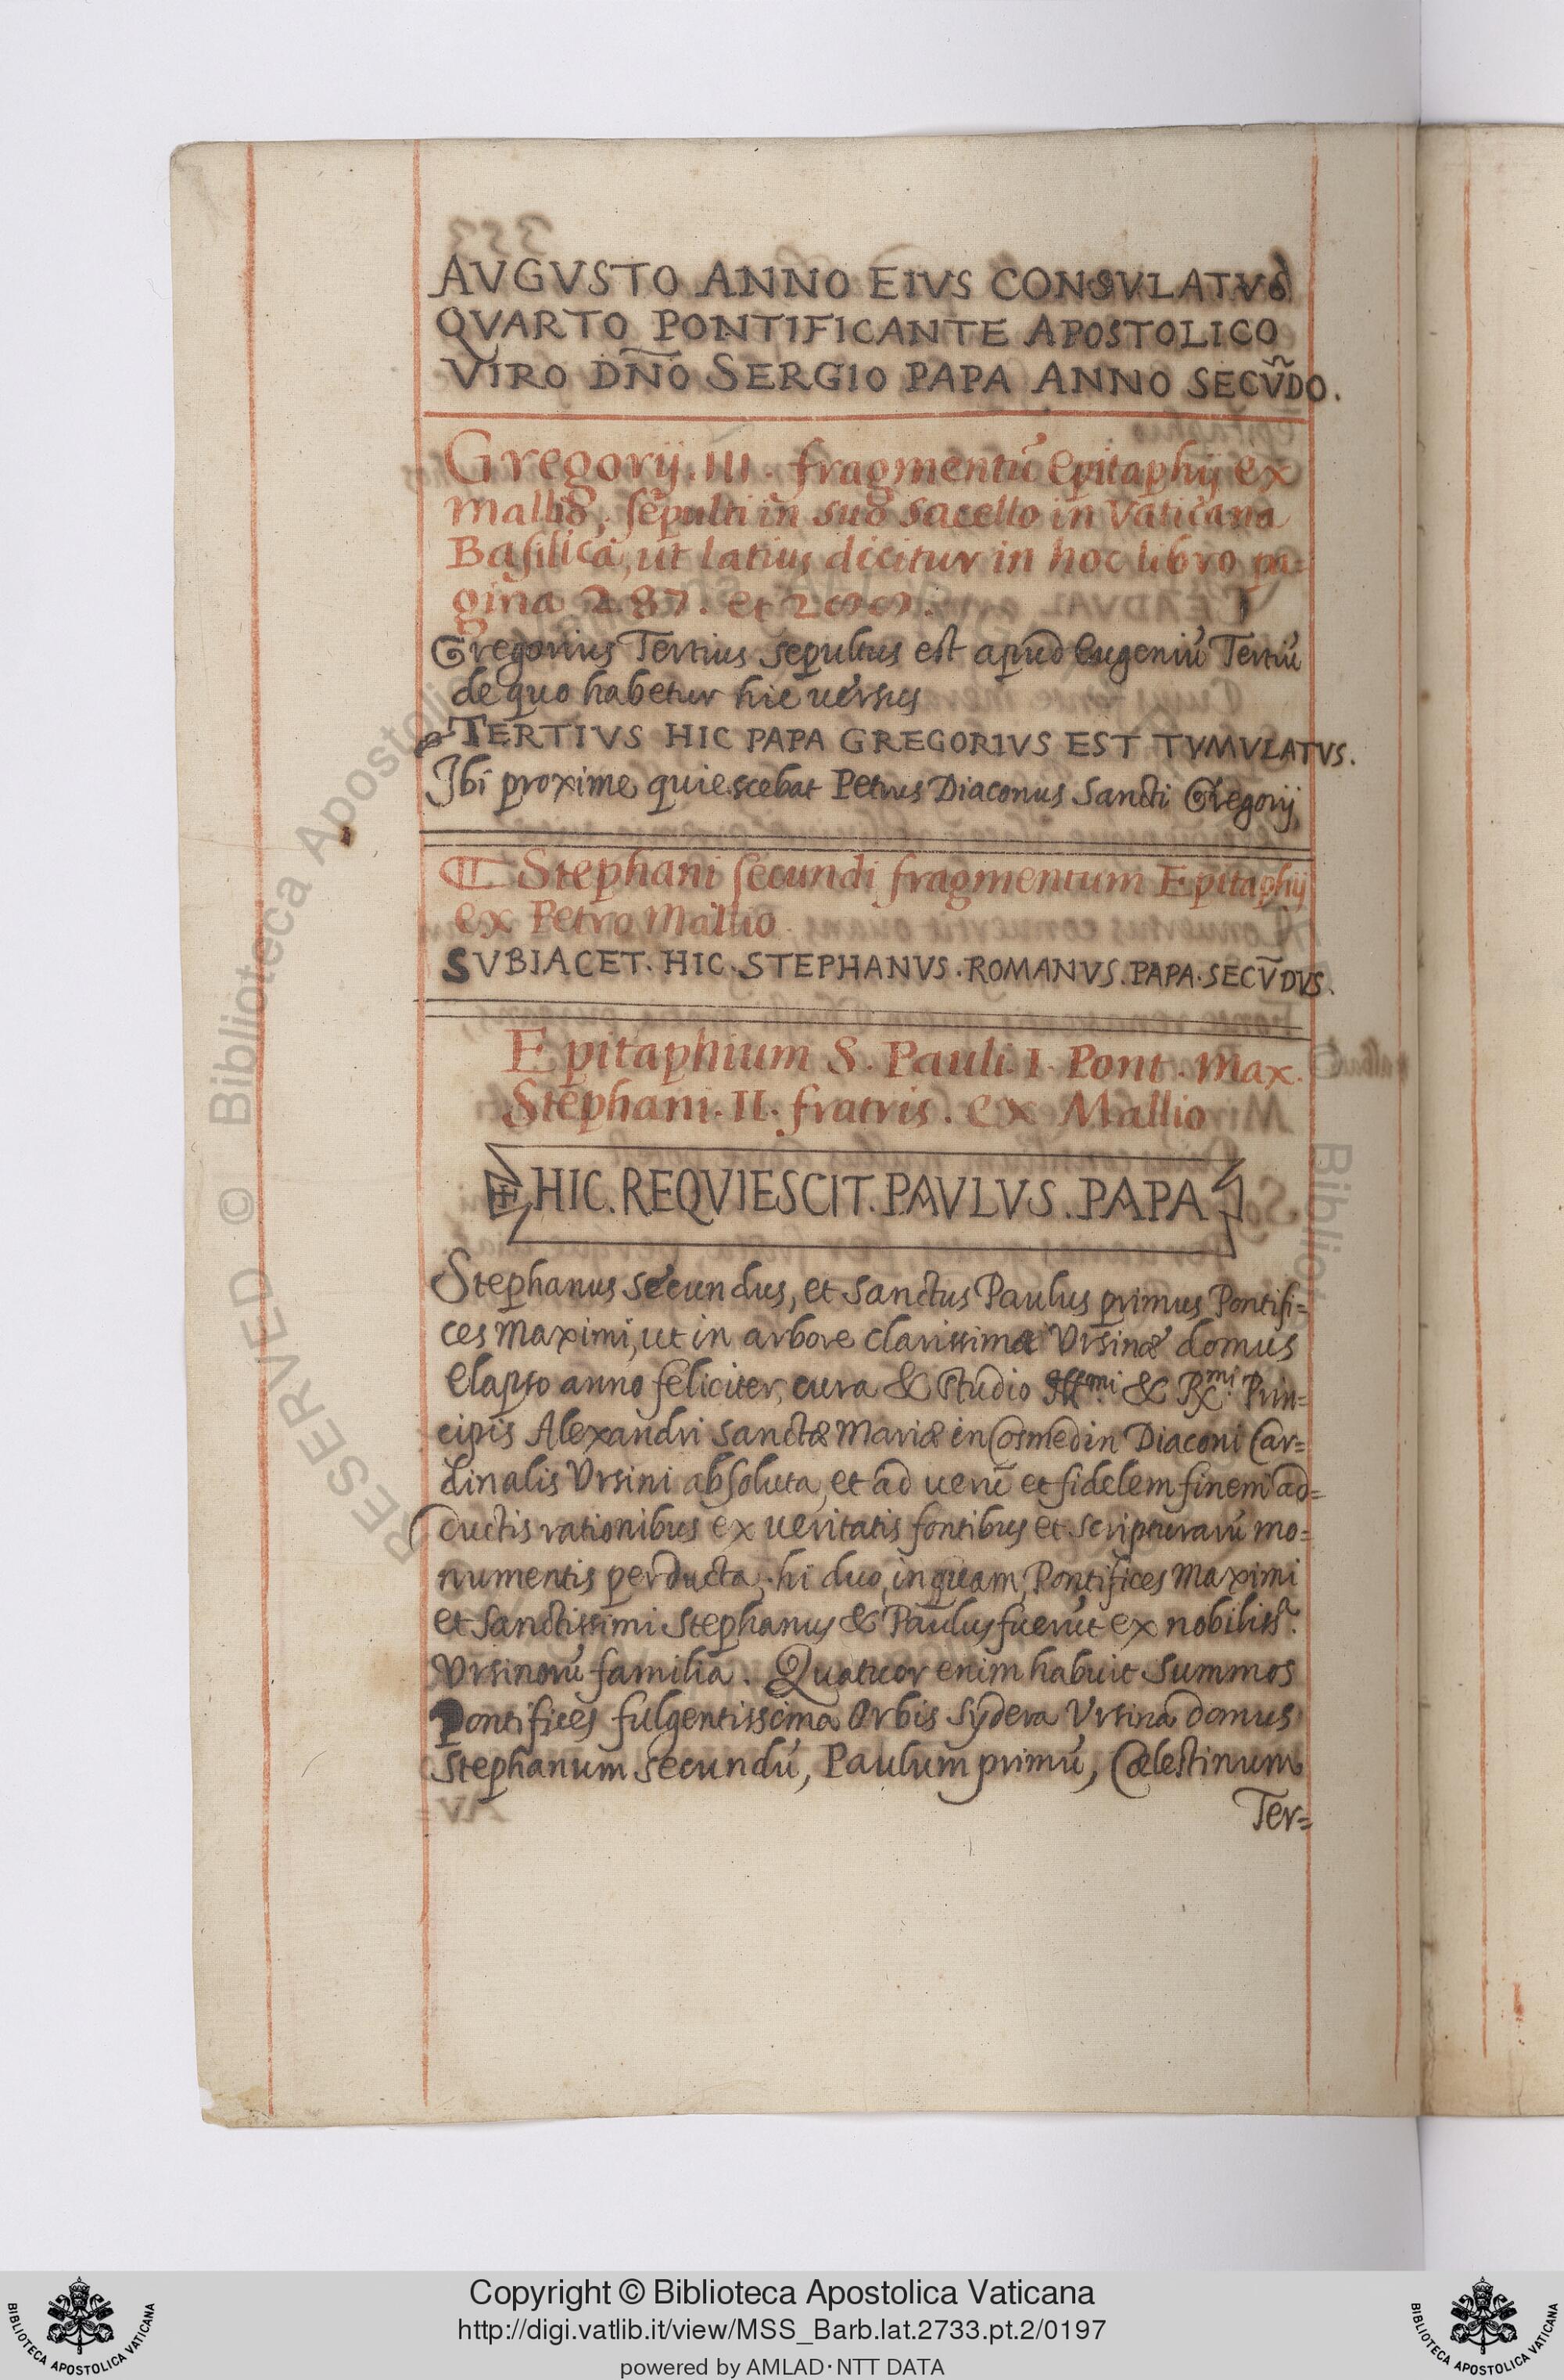 AVGVSTO ANNO EIVS CONSVLATVS
QVARTO PONTIFICANTE APOSTOLICO
VIRO DÑO SERGIO PAPA ANNO SECV̄DO.
Gregorij. III. fragmentũ Epitaphij ex
Mallio, sepulti in suo sacello in Vaticana
Basilica, ut latius dicitur in hoc libro pa=
gina 287. et
Gregorius Tertius sepultus est apud Eugeniũ Tertiũ
de quo habetur hic uersus
TERTIVS HIC PAPA GREGORIVS EST TVMVLATVS.
Ibi proxime quiescebat Petrus Diaconus Sancti Gregorij
Stephani secundi fragmentum Epitaphij
ex Petro Mallio.
SVBIACET. HIC. STEPHANVS. ROMANVS. PAPA. SECV̄DVS.
Epitaphium S. Pauli. I. Pont. Max.
Stephani. II. fratris. ex Mallio
HIC. REQVIESCIT. PAVLVS. PAPA
Stephanus secundus, et sanctus Paulus primus Pontifi=
ces Maximi, ut in arbore clarissimæ Vrsinæ domus
elapso anno feliciter, cura & studio Ill.mi & R.mi Prin=
cipis Alexandri Sanctæ Mariæ in Cosmedin Diaconi Car=
dinalis Vrsini absoluta, et ad uerũ et fidelem finem ad=
ductis rationibus ex ueritatis fontibus et scripturarũ mo=
numentis perducta, hi duo, inquam, Pontifices Maximi
et Sanctissimi Stephanus & Paulus fuerũt ex nobiliss.
Vrsinorũ familia. Quatuor enim habuit Summos
Pontifices fulgentissima Orbis Sydera Vrsina domus
Stephanum secundũ, Paulum primũ, Cælestinum
Ter=
RESERVED © Biblioteca Apostolic
Bibliot
BIBLIOTECA APOSTOLICA VATICANA
Copyright © Biblioteca Apostolica Vaticana
http://digi.vatlib.it/view/MSS_Barb.lat.2733.pt.2/0197
powered by AMLAD·NTT DATA
BIBLIOTECA APOSTOLICA VATICANA